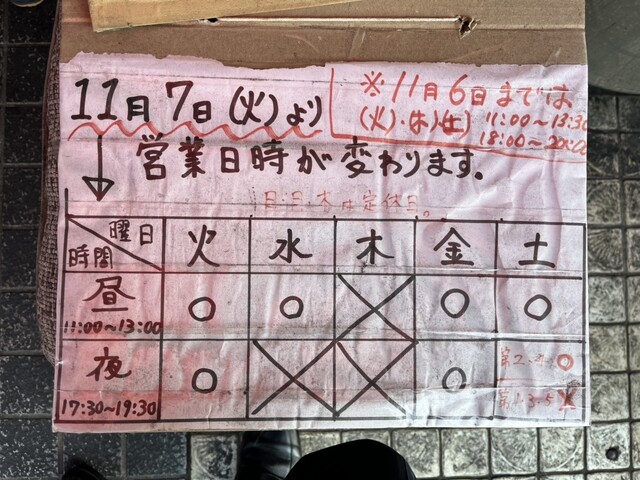 11月7日(火)より
※11月6日までは
(火)・(木)(土) 11:00~13:30
18:00~20:00
営業日時が変わります。
日・月・木は定休日。
曜日 火 水 木 金 土
時間
昼 ○ ○ × ○ ○
11:00~13:00
夜 ○ × × ○
17:30~19:30
第2・4 ○
第1・3・5 ×